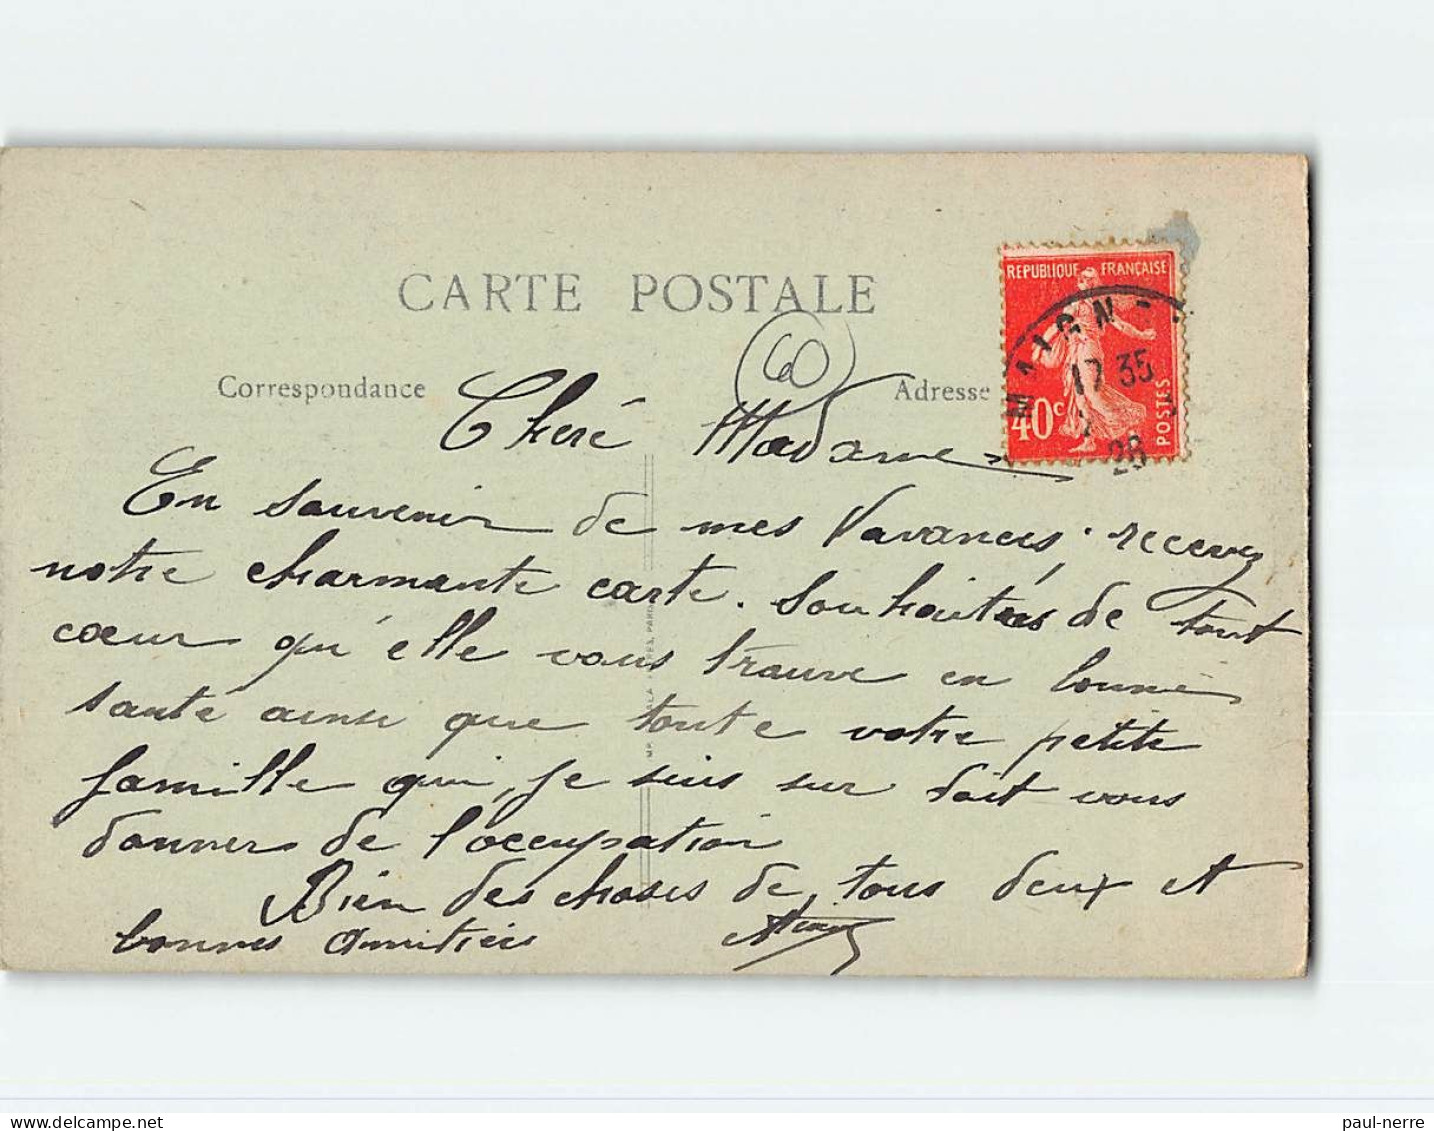 CARTE POSTALE
60
Correspondance
Adresse
REPUBLIQUE FRANÇAISE
40c
POSTES
MAIGN
17 35
26
Cheré Madame
En souvenir de mes Vavances, recevez
notre charmante carte. Souhaitées de tout
cœur qu'elle vous trouve en bonne
santé ainsi que toute votre petite
famille qui, je suis sur doit vous
donner de l'occupation
Bien des choses de tous deux et
bonnes amitiés
paul-nerre